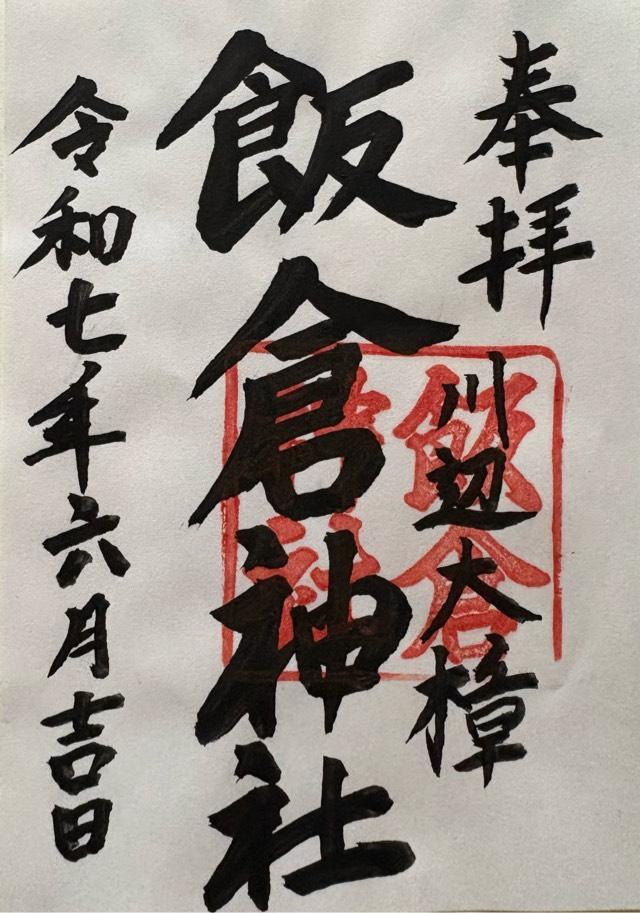 奉拝
川辺大樟
飯倉神社
令和七年六月吉日
飯倉
神社